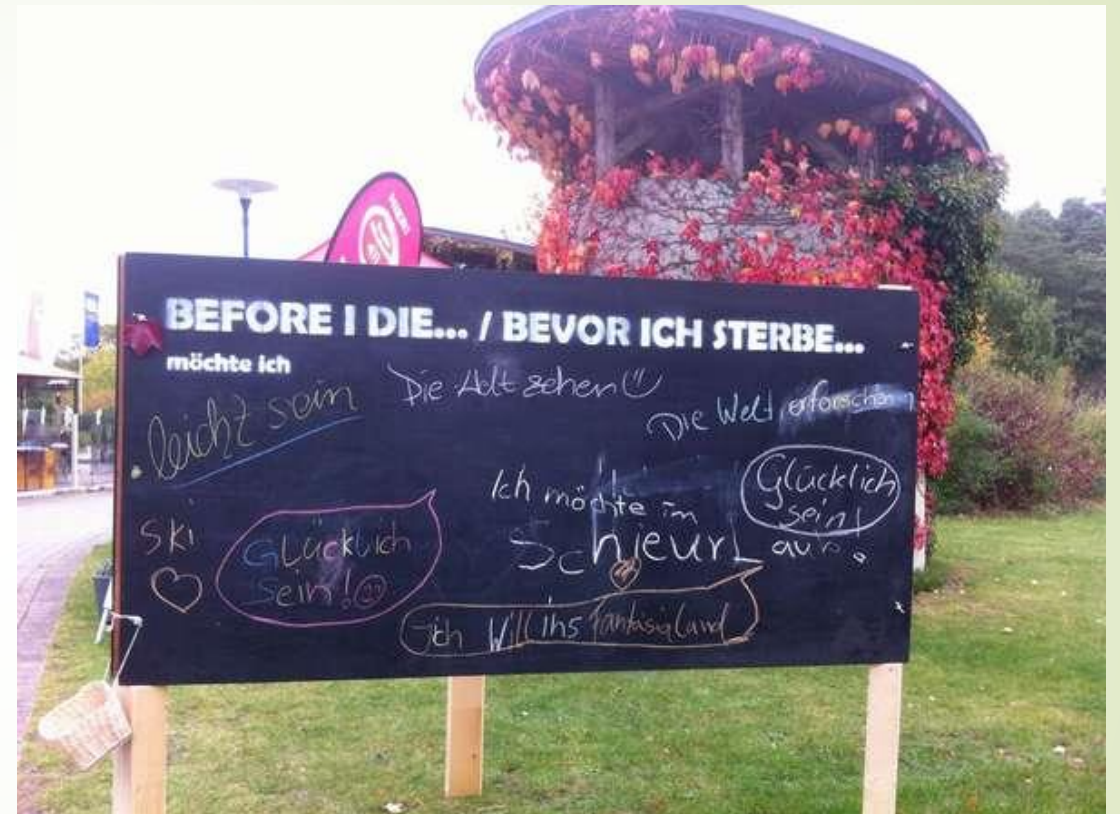 BEFORE I DIE... / BEVOR ICH STERBE...
möchte ich
leicht sein
Die Welt sehen
Die Welt erforschen
Glücklich
sein!
Ich möchte im
SKI
GLücklich
sein!
Ich Will ihs Fantasigland